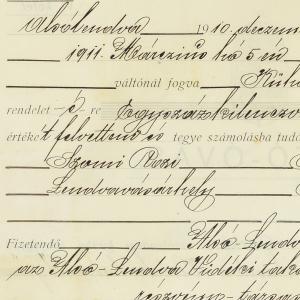 Alsólendva 1910 deczem
1911. Márczius hó 5 én
váltónál fogva
rendelet -é- re Egyszázkilenczv
értékét felvettend és tegye számolásba tud
Szomi Rozi
Lendvavásárhely
Fizetendő Alsó-Lend
az Alsó-Lendva Vidéki tak
részvény-társa